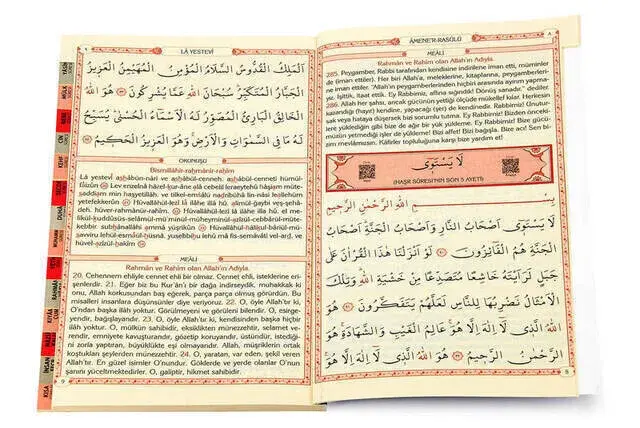 ÂMENE'R-RASÛLÜ ٨
MEÂLİ
Rahman ve Rahim olan Allah'ın Adıyla.
285. Peygamber, Rabbi tarafından kendisine indirilene iman etti, müminler
de (iman ettiler). Her biri Allah'a, meleklerine, kitaplarına, peygamberleri-
ne iman ettiler. "Allah'ın peygamberlerinden hiçbiri arasında ayırım yapma-
yız. İşittik, itaat ettik. Ey Rabbimiz, affına sığındık! Dönüş sanadır." dediler.
286. Allah her şahsı, ancak gücünün yettiği ölçüde mükellef kılar. Herkesin
kazandığı (hayır) kendine, yapacağı (şer) de kendinedir. Rabbimiz! Unutur-
sak veya hataya düşersek bizi sorumlu tutma. Ey Rabbimiz! Bizden önceki-
lere yüklediğin gibi bize de ağır bir yük yükleme. Ey Rabbimiz! Bize gücü-
müzün yetmediği işler de yükleme! Bizi affet! Bizi bağışla. Bize acı! Sen bi-
zim mevlâmızsın. Kâfirler topluluğuna karşı bize yardım et!
لَا يَسْتَوِى
(HAŞR SÛRESİ'NİN SON 5 AYETİ)
بِسْمِ اللّٰهِ الرَّحْمٰنِ الرَّحِيمِ
لَا يَسْتَوِى اَصْحَابُ النَّارِ وَاَصْحَابُ الْجَنَّةِ اَصْحَابُ
الْجَنَّةِ هُمُ الْفَائِزُونَ لَوْ اَنْزَلْنَا هٰذَا الْقُرْاٰنَ عَلٰى
جَبَلٍ لَرَاَيْتَهُ خَاشِعًا مُتَصَدِّعًا مِنْ خَشْيَةِ اللّٰهِ وَتِلْكَ
الْاَمْثَالُ نَضْرِبُهَا لِلنَّاسِ لَعَلَّهُمْ يَتَفَكَّرُونَ هُوَ
اللّٰهُ الَّذِى لَا اِلٰهَ اِلَّا هُوَ عَالِمُ الْغَيْبِ وَالشَّهَادَةِ هُوَ
الرَّحْمٰنُ الرَّحِيمُ هُوَ اللّٰهُ الَّذِى لَا اِلٰهَ اِلَّا هُوَ
8
LÂ YESTEVÎ
اَلْمَلِكُ الْقُدُّوسُ السَّلَامُ الْمُؤْمِنُ الْمُهَيْمِنُ الْعَزِيزُ
الْجَبَّارُ الْمُتَكَبِّرُ سُبْحَانَ اللّٰهِ عَمَّا يُشْرِكُونَ هُوَ اللّٰهُ
الْخَالِقُ الْبَارِئُ الْمُصَوِّرُ لَهُ الْاَسْمَاءُ الْحُسْنٰى يُسَبِّحُ
لَهُ مَا فِى السَّمٰوَاتِ وَالْاَرْضِ وَهُوَ الْعَزِيزُ الْحَكِيمُ
OKUNUŞU
Bismillâhir-rahmânir-rahîm
Lâ yestevî ashâbün-nâri ve ashâbül-cenneti ashâbül-cenneti hümül-
fâizûn Lev enzelnâ hâzel-kur-âne alâ cebelil leraeytehû hâşiam müte-
saddiam min haşyetillâh, ve tilkel-emsâlü nadribühâ lin-nâsi leallehüm
yetefekkerûn Hüvallâhül-lezî lâ ilâhe illâ hû, âlimül-ğaybi veş-şehâ-
deh, hüver-rahmânür-rahîm. Hüvallâhül-lezî lâ ilâhe illâ hû, el me-
likül-kuddûsüs-selâmül-mü'minül-müheyminül-azîzül-cebbârül-müte-
kebbir, subhânallâhi ammâ yüşrikûn Hüvallâhül-hâlikul-bâriül-mü-
savviru lehül-esmâül-hüsnâ, yusebbihu lehû mâ fis-semâvâti vel-ard, ve
hüvel-azîzül-hakîm
MEÂLİ
Rahman ve Rahim olan Allah'ın Adıyla.
20. Cehennem ehliyle cennet ehli bir olmaz. Cennet ehli, isteklerine eri-
şenlerdir. 21. Eğer biz bu Kur'ân'ı bir dağa indirseydik, muhakkak ki
onu, Allah korkusundan baş eğerek, parça parça olmuş görürdün. Bu
misalleri insanlara düşünsünler diye veriyoruz. 22. O, öyle Allah'tır ki,
O'ndan başka ilâh yoktur. Görülmeyeni ve görüleni bilendir. O, esirge-
yendir, bağışlayandır. 23. O, öyle Allah'tır ki, kendisinden başka hiçbir
ilâh yoktur. O, mülkün sahibidir, eksiklikten münezzehtir, selamet ve-
rendir, emniyete kavuşturandır, gözetip koruyandır, üstündür, istediği-
ni zorla yaptıran, büyüklükte eşi olmayandır. Allah, müşriklerin ortak
koştukları şeylerden münezzehtir. 24. O, yaratan, var eden, şekil veren
Allah'tır. En güzel isimler O'nundur. Göklerde ve yerde olanlar O'nun
şanını yüceltmektedirler. O, galiptir, hikmet sahibidir.
9
YÂSÎN
MÜLK
NEBE
CİN
KEHF
SECDE
DUHÂ